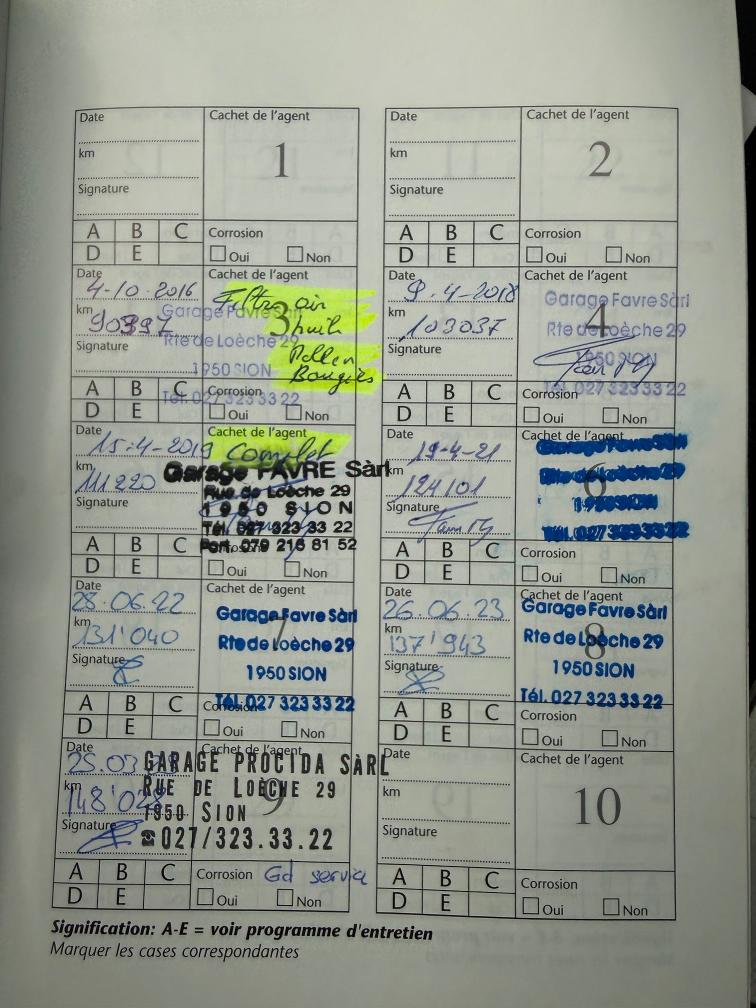 Date
Cachet de l'agent
km
1
Signature
A B C
D E
Corrosion
Oui Non
Date
Cachet de l'agent
km
2
Signature
A B C
D E
Corrosion
Oui Non
Date
4-10-2016
km
90397
Signature
Cachet de l'agent
3
Filtre air
huile
Pollen
Bougies
Garage Favre Sàrl
Rte de Loèche 29
1950 SION
Tél. 027 323 33 22
A B C
D E
Corrosion
Oui Non
Date
9-4-2018
km
103037
Signature
Cachet de l'agent
4
Garage Favre Sàrl
Rte de Loèche 29
1950 SION
Tél. 027 323 33 22
A B C
D E
Corrosion
Oui Non
Date
15-4-2019
km
111220
Signature
Cachet de l'agent
Complet
Garage FAVRE Sàrl
Rue de Loèche 29
1950 SION
Tél. 027 323 33 22
Port. 079 216 81 52
A B C
D E
Oui Non
Date
19-4-21
km
124101
Signature
Cachet de l'agent
6
Garage Favre Sàrl
Rte de Loèche 29
1950 SION
Tél. 027 323 33 22
A B C
D E
Corrosion
Oui Non
Date
28.06.22
km
131'040
Signature
Cachet de l'agent
7
Garage Favre Sàrl
Rte de Loèche 29
1950 SION
Tél. 027 323 33 22
A B C
D E
Corrosion
Oui Non
Date
26.06.23
km
137'943
Signature
Cachet de l'agent
8
Garage Favre Sàrl
Rte de Loèche 29
1950 SION
Tél. 027 323 33 22
A B C
D E
Corrosion
Oui Non
Date
25.03
km
Signature
Cachet de l'agent
9
GARAGE PROCIDA SÀRL
RUE DE LOÈCHE 29
1950 SION
☎027/323.33.22
A B C
D E
Corrosion Gd service
Oui Non
Date
Cachet de l'agent
km
10
Signature
A B C
D E
Corrosion
Oui Non
Signification: A-E = voir programme d'entretien
Marquer les cases correspondantes